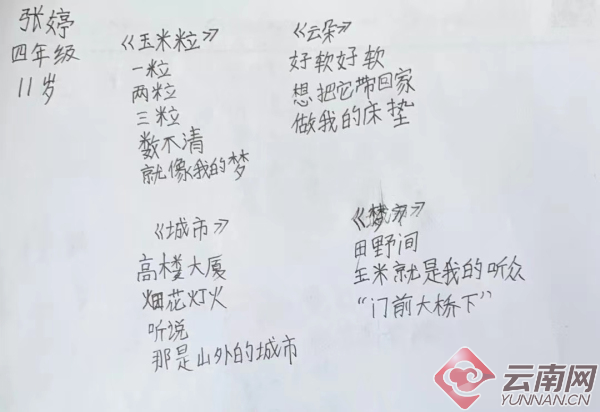 张婷
四年级
11岁
《玉米粒》
一粒
两粒
三粒
数不清
就像我的梦
《云朵》
好软好软
想把它带回家
做我的床垫
《城市》
高楼大厦
烟花灯火
听说
那是山外的城市
田野间
玉米就是我的听众
“门前大桥下”
云南网
YUNNAN.CN